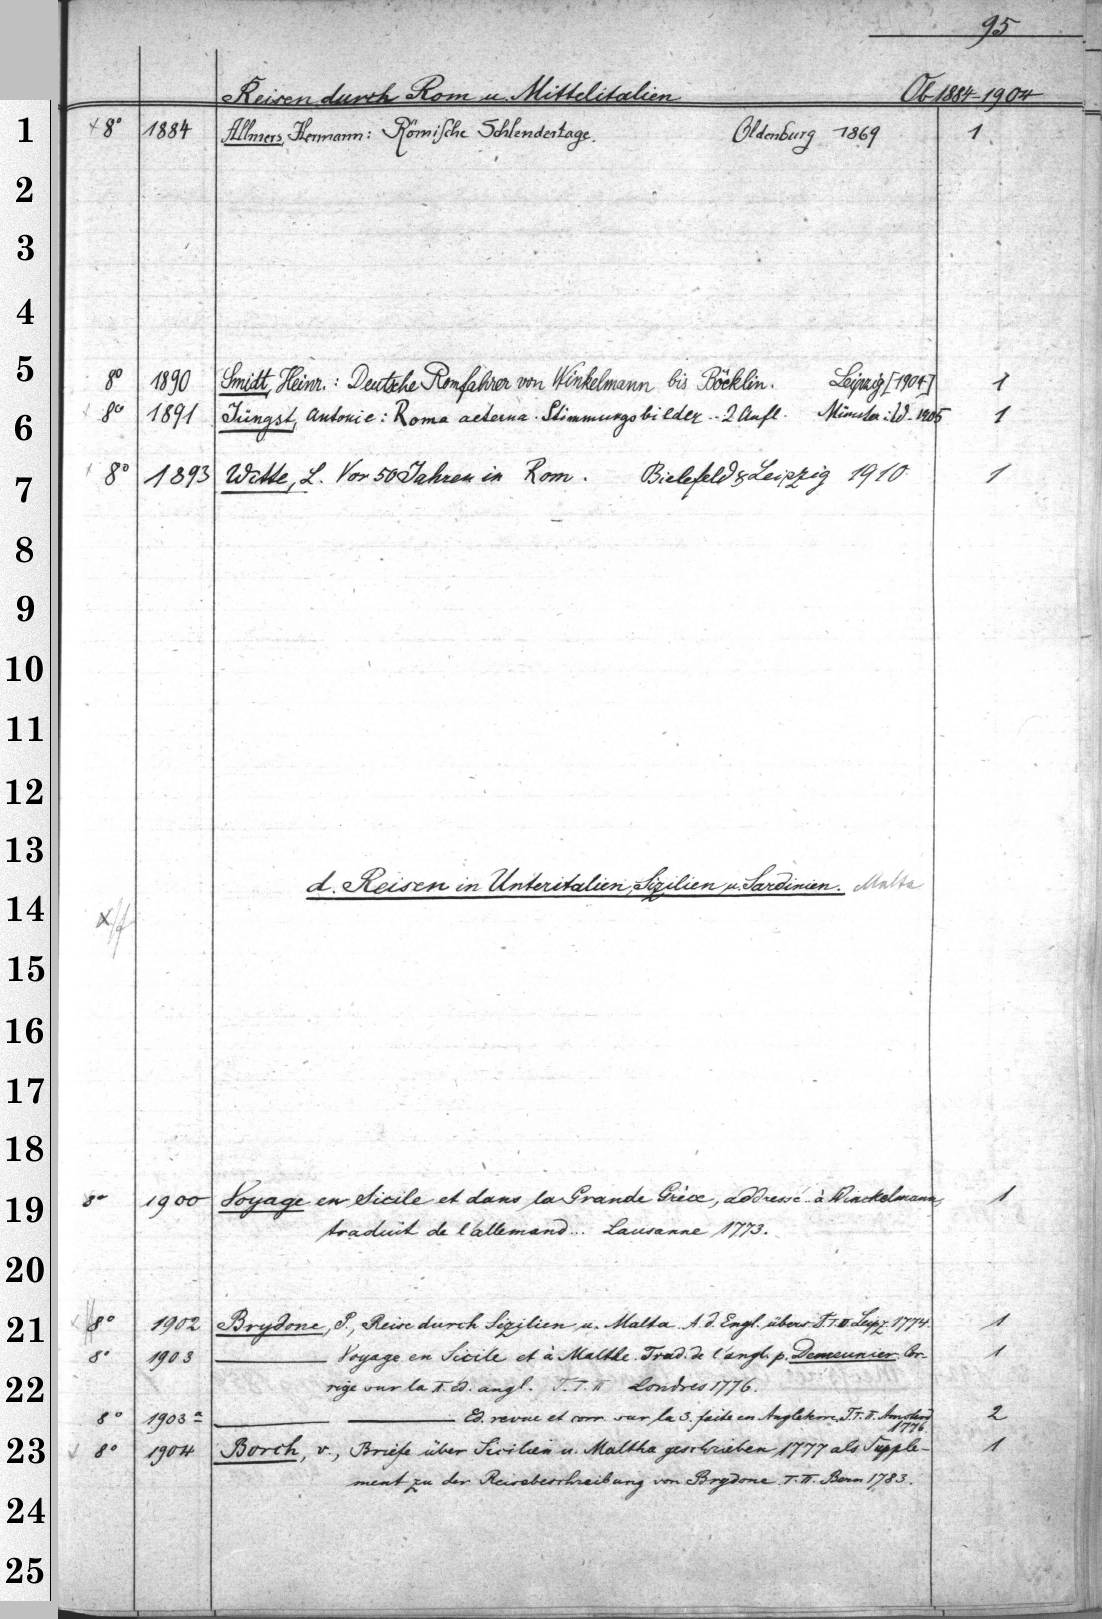 95
Reisen durch Rom u. Mittelitalien Ob 1884-1904
1 × 8° 1884 Allmers, Hermann: Römische Schlendertage. Oldenburg 1869 1
2
3
4
5 8° 1890 Smidt, Heinr.: Deutsche Romfahrer von Winkelmann bis Böcklin. Leipzig [1904] 1
6 8° 1891 Jüngst, Antonie: Roma aeterna. Stimmungsbilder.. 2 Aufl. Münster i. W. 1905 1
7 8° 1893 Witte, L. Vor 50 Jahren in Rom. Bielefeld & Leipzig 1910 1
8
9
10
11
12
13
d. Reisen in Unteritalien, Sizilien u. Sardinien. Malta
14 ×
15
16
17
18
19 8° 1900 Voyage en Sicile et dans la Grande Grèce, addressé.. à Winckelmann,  1
traduit de l'allemand... Lausanne 1773.
20
21 8° 1902 Brydone, P., Reise durch Sizilien u. Malta. A. d. Engl. übers. T. I. II Leipz. 1774. 1
8° 1903 ——— Voyage en Sicile et à Malthe. Trad. de l'angl. p. Demeunier. Cor-  1
22 rigé sur la II. éd. angl. T. I. II Londres 1776.
8° 1903ª ——— ——— Ed. revue et corr. sur la 3. faite en Angleterre. T. I. II. Amsterd. 1776. 2
23 8° 1904 Borch, v., Briefe über Sicilien u. Maltha geschrieben 1777 als Supple- 1
ment zu der Reisebeschreibung von Brydone. T. I. II. Bern 1783.
24
25